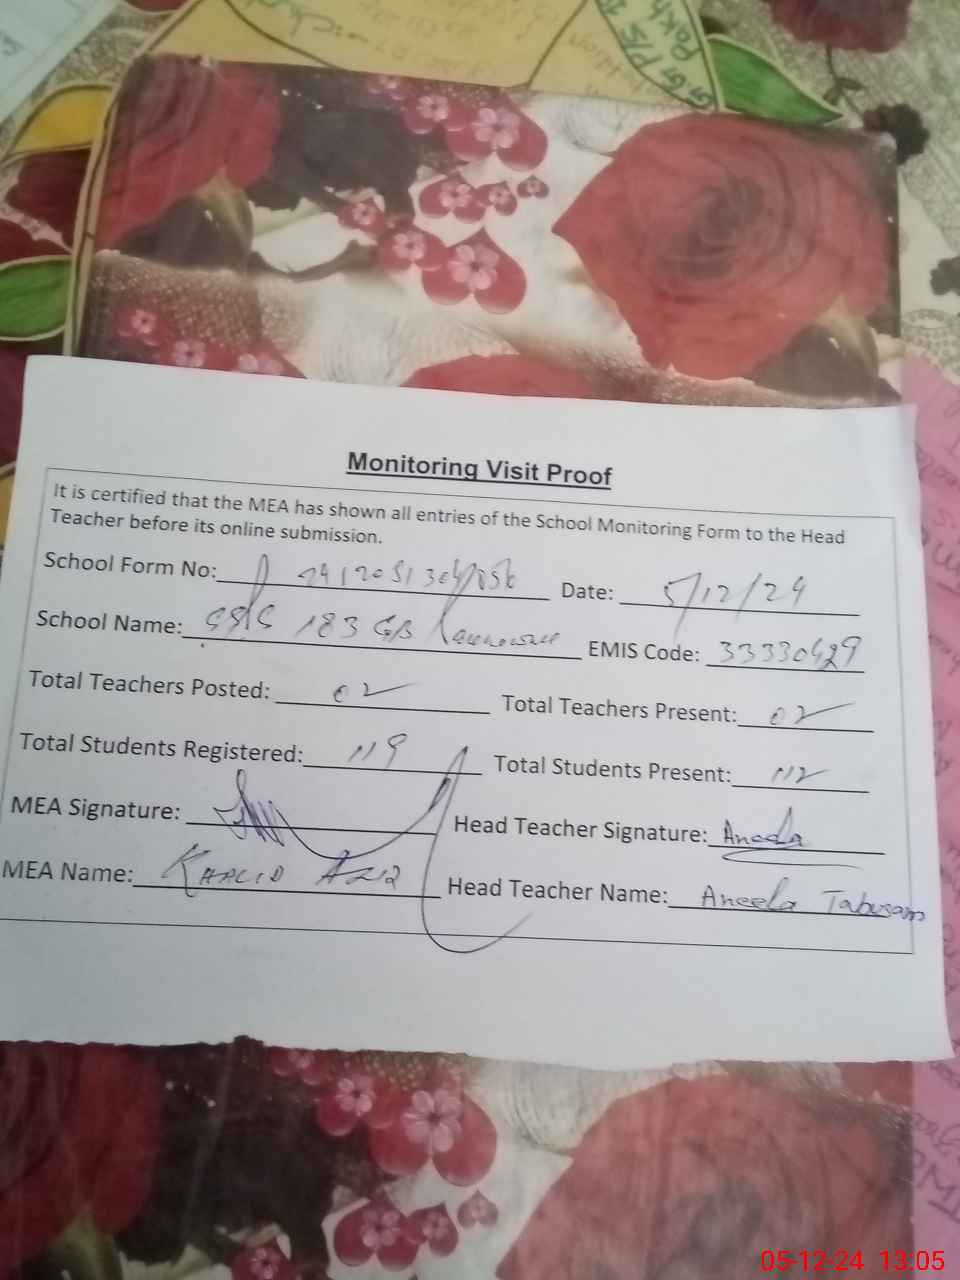 GGPS
Pakh
Monitoring Visit Proof
It is certified that the MEA has shown all entries of the School Monitoring Form to the Head
Teacher before its online submission.
School Form No: Date: 5/12/24
School Name: 183 GB EMIS Code: 33330429
Total Teachers Posted: 02 Total Teachers Present: 02
Total Students Registered: 119 Total Students Present: 112
MEA Signature: Head Teacher Signature: Aneela
MEA Name: Khalid Aziz Head Teacher Name: Aneela Tabusam
05-12-24 13:05